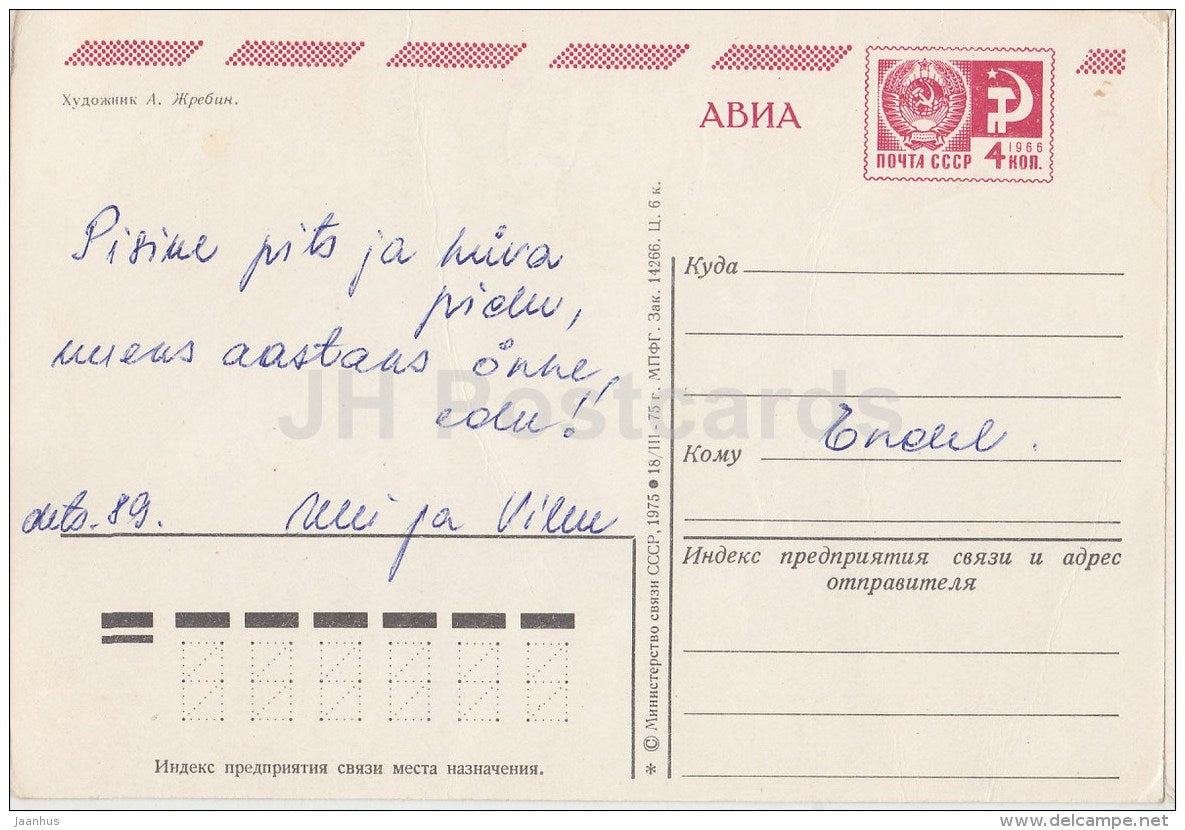 Художник А. Жребин.
АВИА
ПОЧТА СССР
1966
4 КОП.
Pisike pits ja hüva
pidu,
uueks aastaks õnne,
edu!!
dets. 89.
Ulli ja Vilmu
Куда
Кому Endel.
Индекс предприятия связи и адрес
отправителя
Индекс предприятия связи места назначения.
* © Министерство связи СССР, 1975 ● 18/III-75 г. МПФГ. Зак. 14266. Ц. 6 к.
JH Postcards
Jaanhus
www.delcampe.net